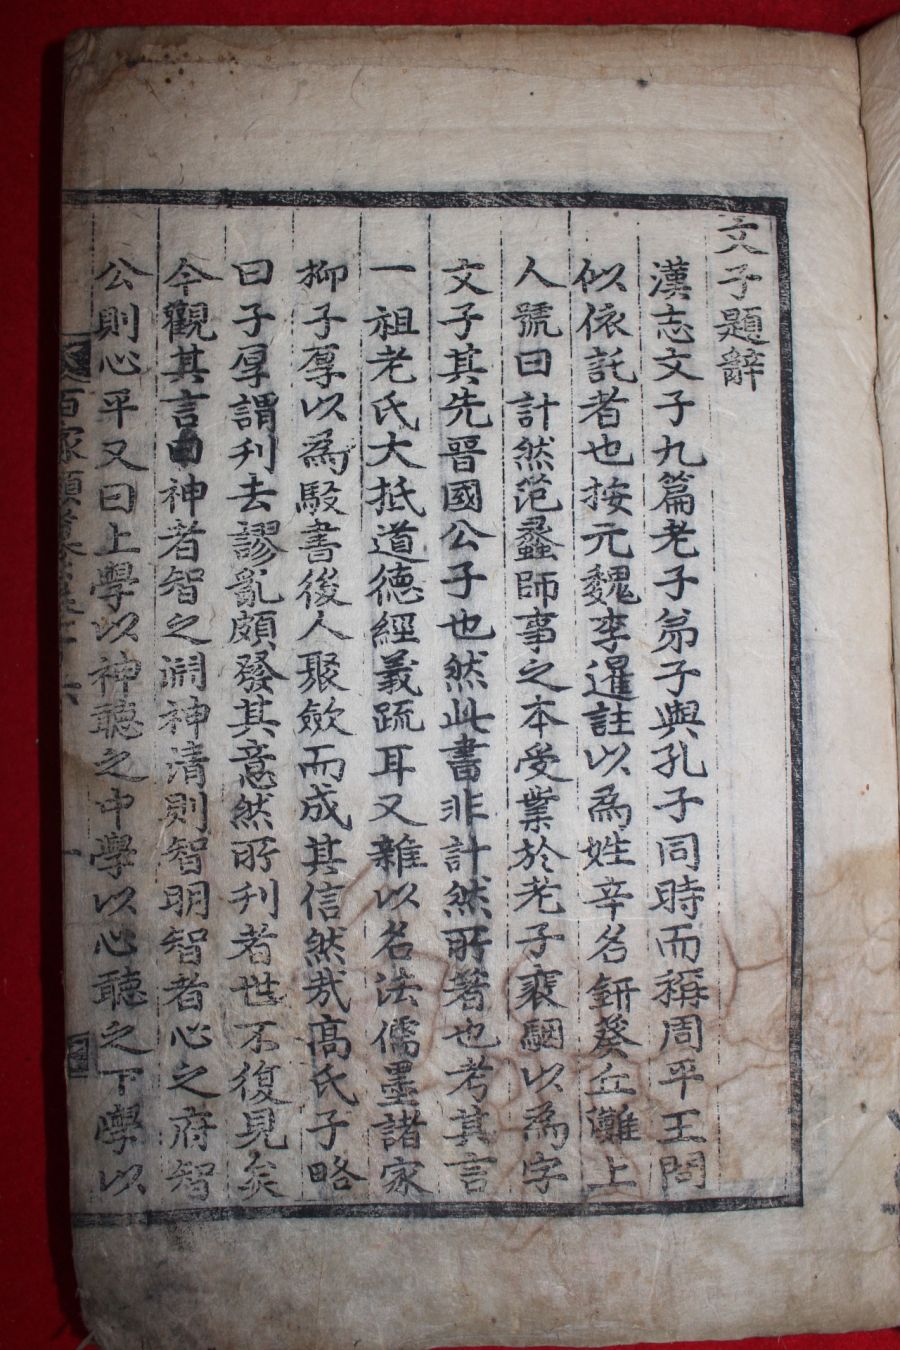 文子題辭
漢志文子九篇老子弟子與孔子同時而稱周平王問
似依託者也按元魏李暹註以爲姓辛名鈃葵丘濮上
人號曰計然范蠡師事之本受業於老子裵駰以爲字
文子其先晉國公子也然此書非計然所著也考其言
一祖老氏大抵道德經義䟽耳又雜以名法儒墨諸家
柳子厚以爲駁書後人聚歛而成其信然㢤高氏子略
曰子厚謂刋去謬亂頗發其意然所刋者世不復見矣
今觀其言曰神者智之淵神清則智明智者心之府智
公則心平又曰上學以神聽之中學以心聽之下學以
百家類纂卷